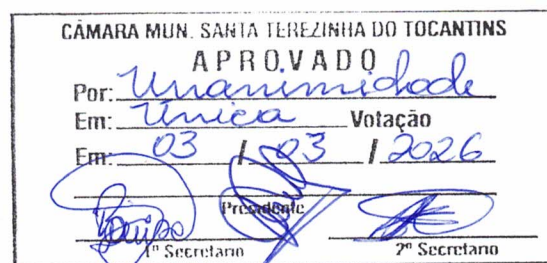 CÂMARA MUN. SANTA TEREZINHA DO TOCANTINS
APROVADO
Por: Unanimidade
Em: Única Votação
Em: 03 / 03 / 2026
Presidente
1º Secretario 2º Secretario